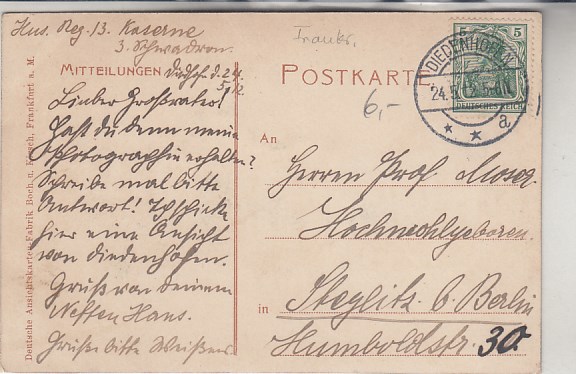 Hus. Reg. 13. Kaserne
3. Schwadron.
MITTEILUNGEN Ddhf. d. 24.
5. 12.
Lieber Großvater!
Hast du denn meine
Photographie erhalten?
Schreibe mal bitte
Antwort! Ich schicke
hier eine Ansicht
von Diedenhofen.
Gruß von deinem
Neffen Hans.
Grüße bitte
Franks.
POSTKARTE
6,-
5
DIEDENHOFEN
24.5.12. 5-6N.
DEUTSCHES REICH
* * a
An
Herren Prof. Moser.
Hochwohlgeboren.
in Steglitz b. Berlin
Humboldtstr. 30.
Deutsche Ansichtskarten-Fabrik Frankfurt a. M.